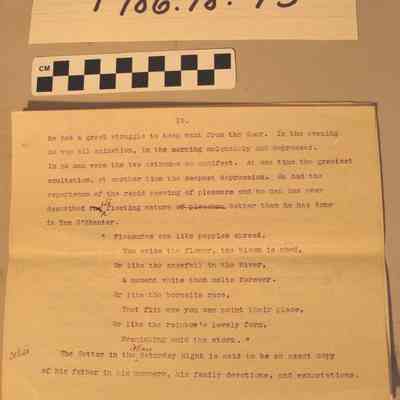 1986.18.73
CM
10.
he had a great struggle to keep want from the door. In the evening
he was all animation, in the morning melancholy and depressed.
In no man were the two extremes so manifest. At one time the greatest
exultation, at another time the deepest depression. He had the
experience of the rapid sowing of pleasure and no man has ever
described the fleeting nature of pleasure better than he has done
in Tam O'Shanter.
" Pleasures are like poppies spread,
You seize the flower, the bloom is shed,
Or like the snowfall in the river,
A moment white then melts forever.
Or like the borealis race,
That flit ere you can point their place,
Or like the rainbow's lovely form,
Evanishing amid the storm. "
The Cotter in the Saturday Night is said to be an exact copy
of his father in his manners, his family devotions, and exhortations.